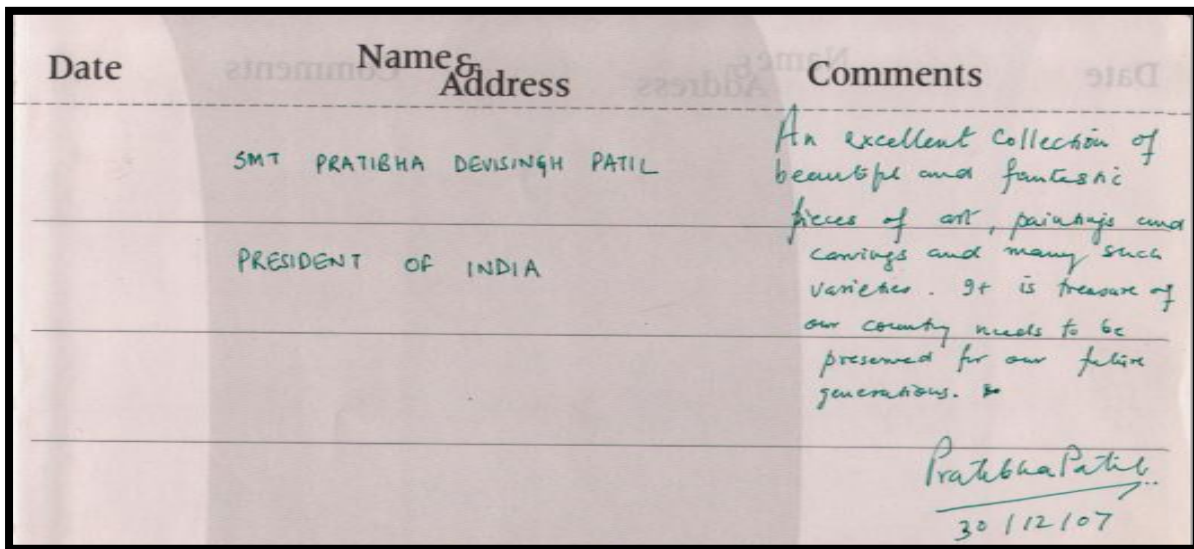 Date Name & Address Comments
SMT PRATIBHA DEVISINGH PATIL
PRESIDENT OF INDIA
An excellent collection of
beautiful and fantastic
pieces of art, paintings and
carvings and many such
varieties. It is treasure of
our country needs to be
preserved for our future
generations.
Pratibha Patil
30/12/07